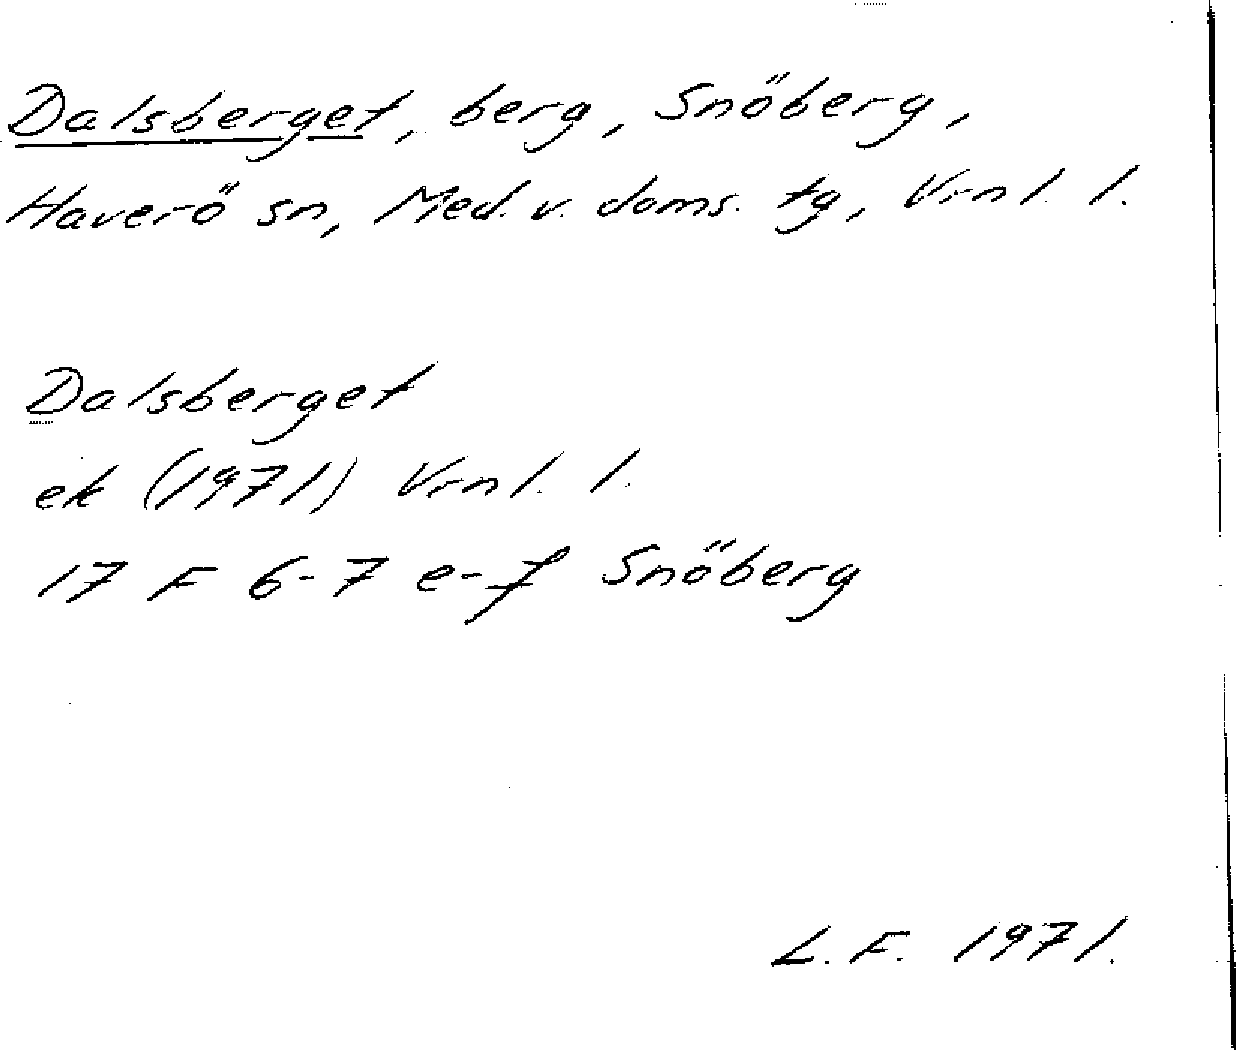 Dalsberget, berg, Snöberg,
Haverö sn, Med. v. doms. tg, Vrnl. l.
Dalsberget
ek (1971) Vrnl. l.
17 F 6-7 e-f Snöberg
L. F. 1971.